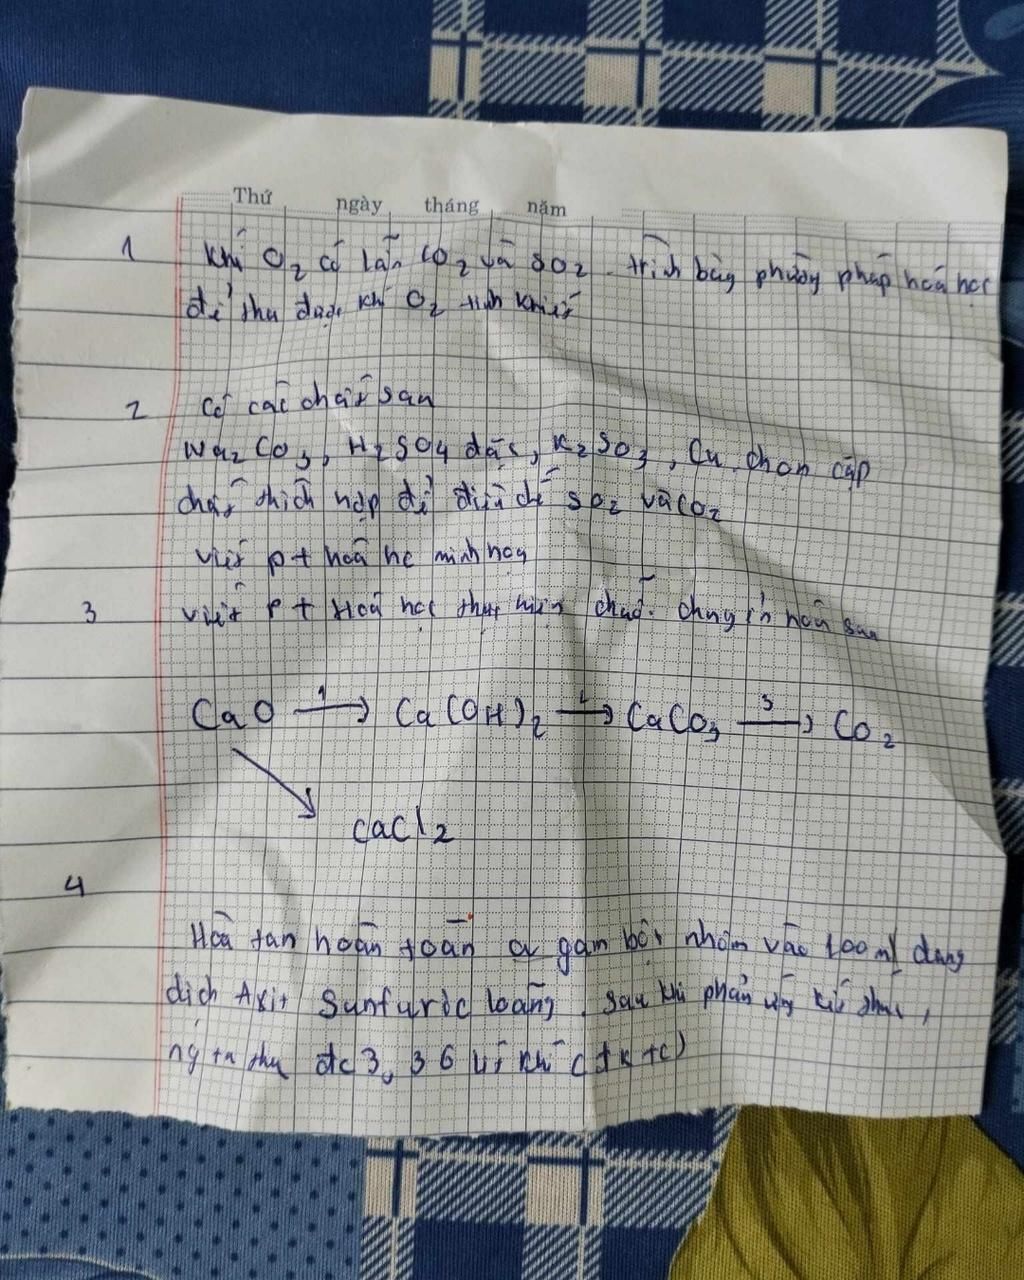 Thứ ngày tháng năm
1 Khí O2 có lẫn CO2 và SO2. trình bày phương pháp hoá học
để thu được khí O2 tinh khiết
2 Có các chất sau
Na2CO3, H2SO4 đặc, K2SO3, Cu. chọn cặp
chất thích hợp để điều chế SO2 và CO2
viết pt hoá hc minh hoạ
3 viết pt Hoá học thực hiện chuỗi. chuyển hoá sau
CaO 1→ Ca(OH)2 2→ CaCO3 3→ CO2
CaCl2
4
Hoà tan hoàn toàn a gam bột nhôm vào 100ml dung
dịch Axit Sunfuric loãng. sau khi phản ứng kết thúc,
ng ta thu đc 3,36 lít khí (đktc)